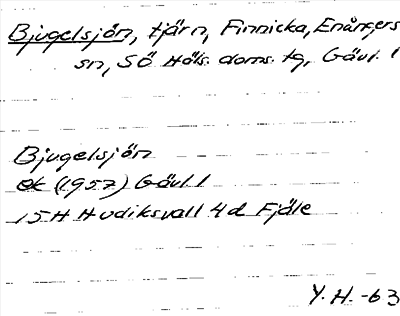 Bjugelsjön, tjärn, Finnicka, Enångers
sn, SÖ Häls. doms. tg, Gävl. l
Bjugelsjön
ek (1957) Gävl l
15H Hudiksvall 4d Fjäle
Y. H. -63